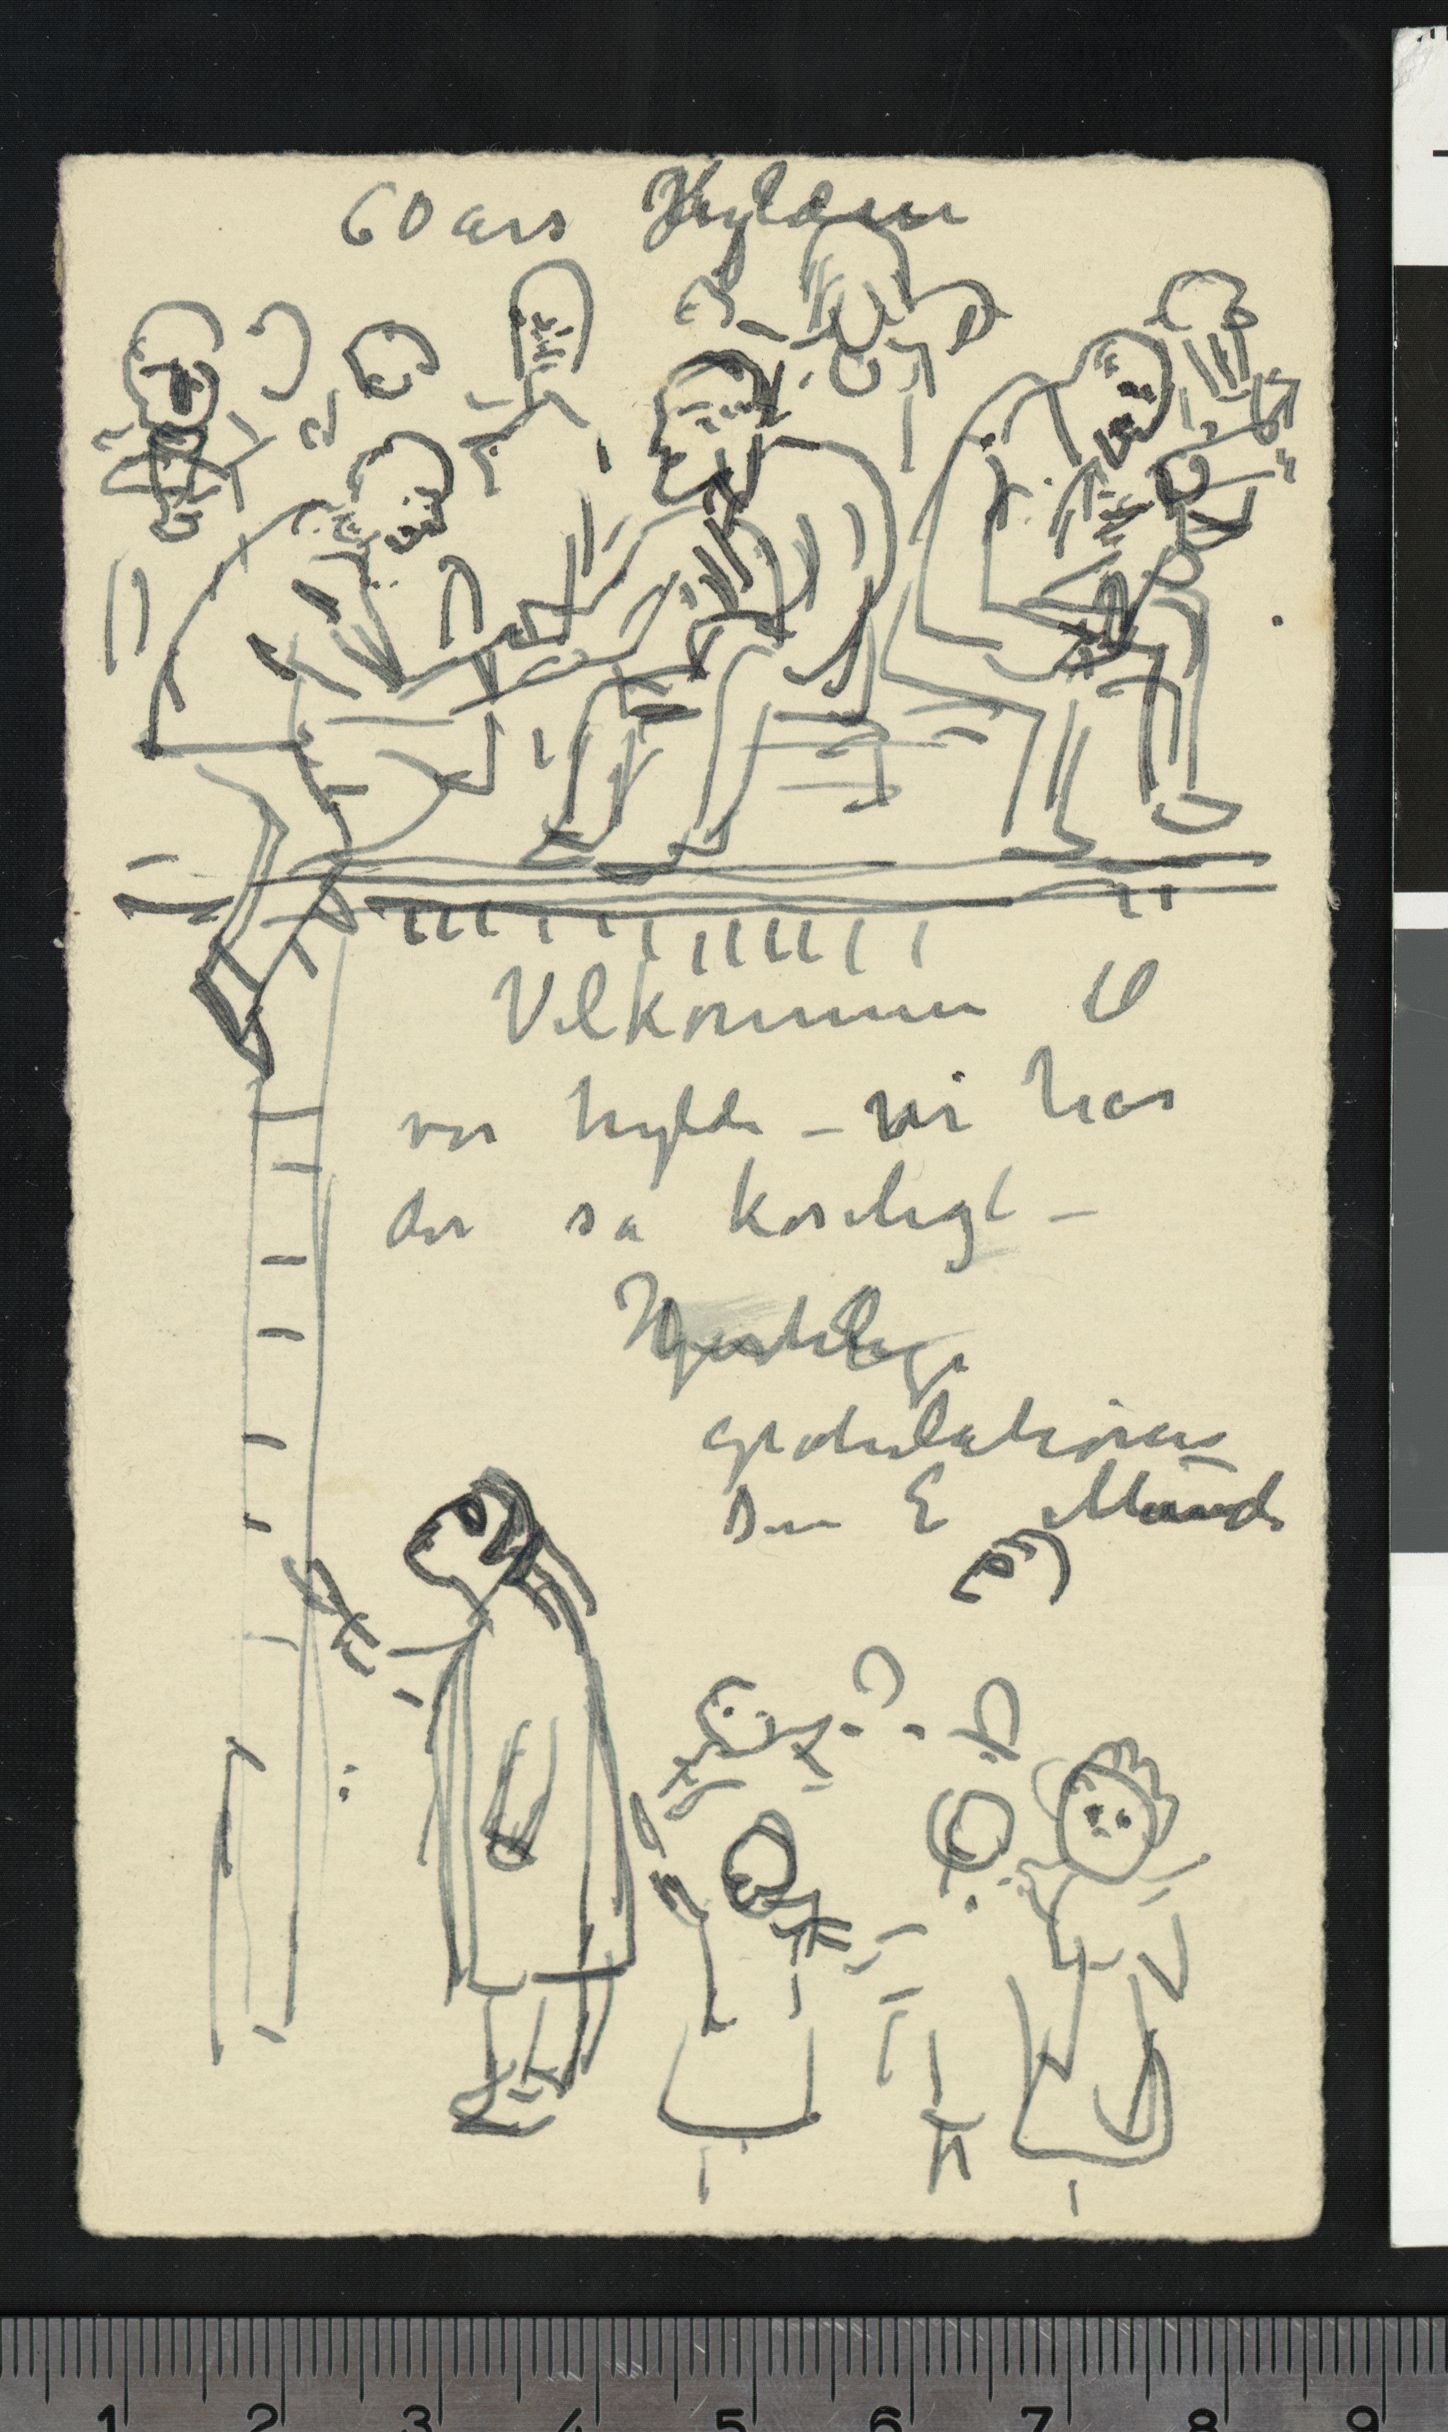 60 års Hylden
Velkommen til
vor hylde – vi har
det så koseligt –
Hjertelige
gratulationer
Din E Munch
1 2 3 4 5 6 7 8 9